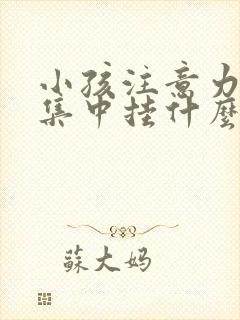 小孩注意力
集中挂什麼
蘇大妈